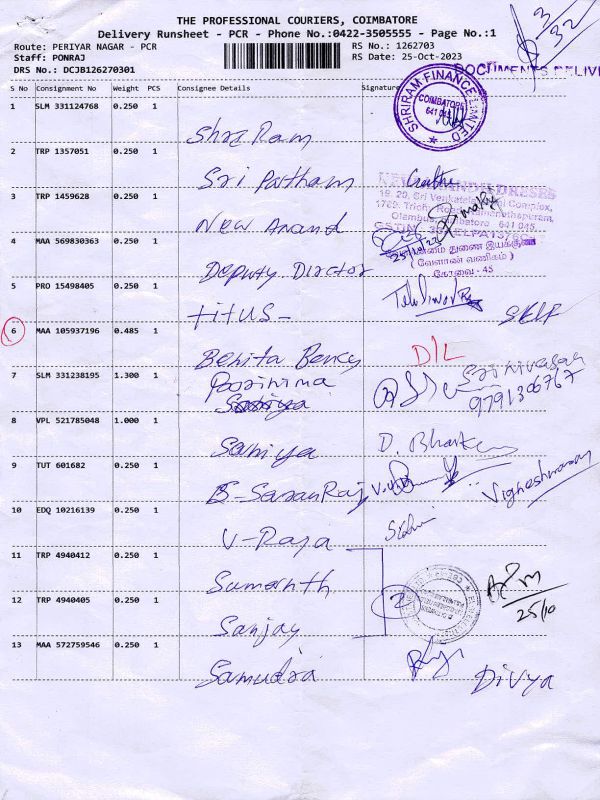 THE PROFESSIONAL COURIERS, COIMBATORE
Delivery Runsheet - PCR - Phone No.:0422-3505555 - Page No.:1
3/32
Route: PERIYAR NAGAR - PCR
RS No.: 1262703
Staff: PONRAJ
RS Date: 25-Oct-2023
DRS No.: DCJB126270301
DOCUMENTS DELIV
S No Consignment No Weight PCS Consignee Details Signature
SHRIRAM FINANCE LIMITED
COIMBATORE
641 045
1 SLM 331124768 0.250 1 Shri Ram
2 TRP 1357051 0.250 1 Sri Partham
3 TRP 1459628 0.250 1 New Anand
19, 20, Sri Venkatesa Complex,
1769, Trichy Road, Ramanathapuram,
Olambus, Coimbatore 641 045
4 MAA 569830363 0.250 1 Deputy Director
(வேளாண் வணிகம்)
கோவை - 45
5 PRO 15498405 0.250 1 titus - Self
6 MAA 105937196 0.485 1 Benita Bency D/L
7 SLM 331238195 1.300 1 Poornima Srinivasan
9791306767
8 VPL 521785048 1.000 1 Saniya D. Bhaskar
9 TUT 601682 0.250 1 B-SaranRaj Vigneshwaran
10 EDQ 10216139 0.250 1 V-Raja
11 TRP 4940412 0.250 1 Sumanth
2
25/10
12 TRP 4940405 0.250 1 Sanjay
13 MAA 572759546 0.250 1 Samudra Divya